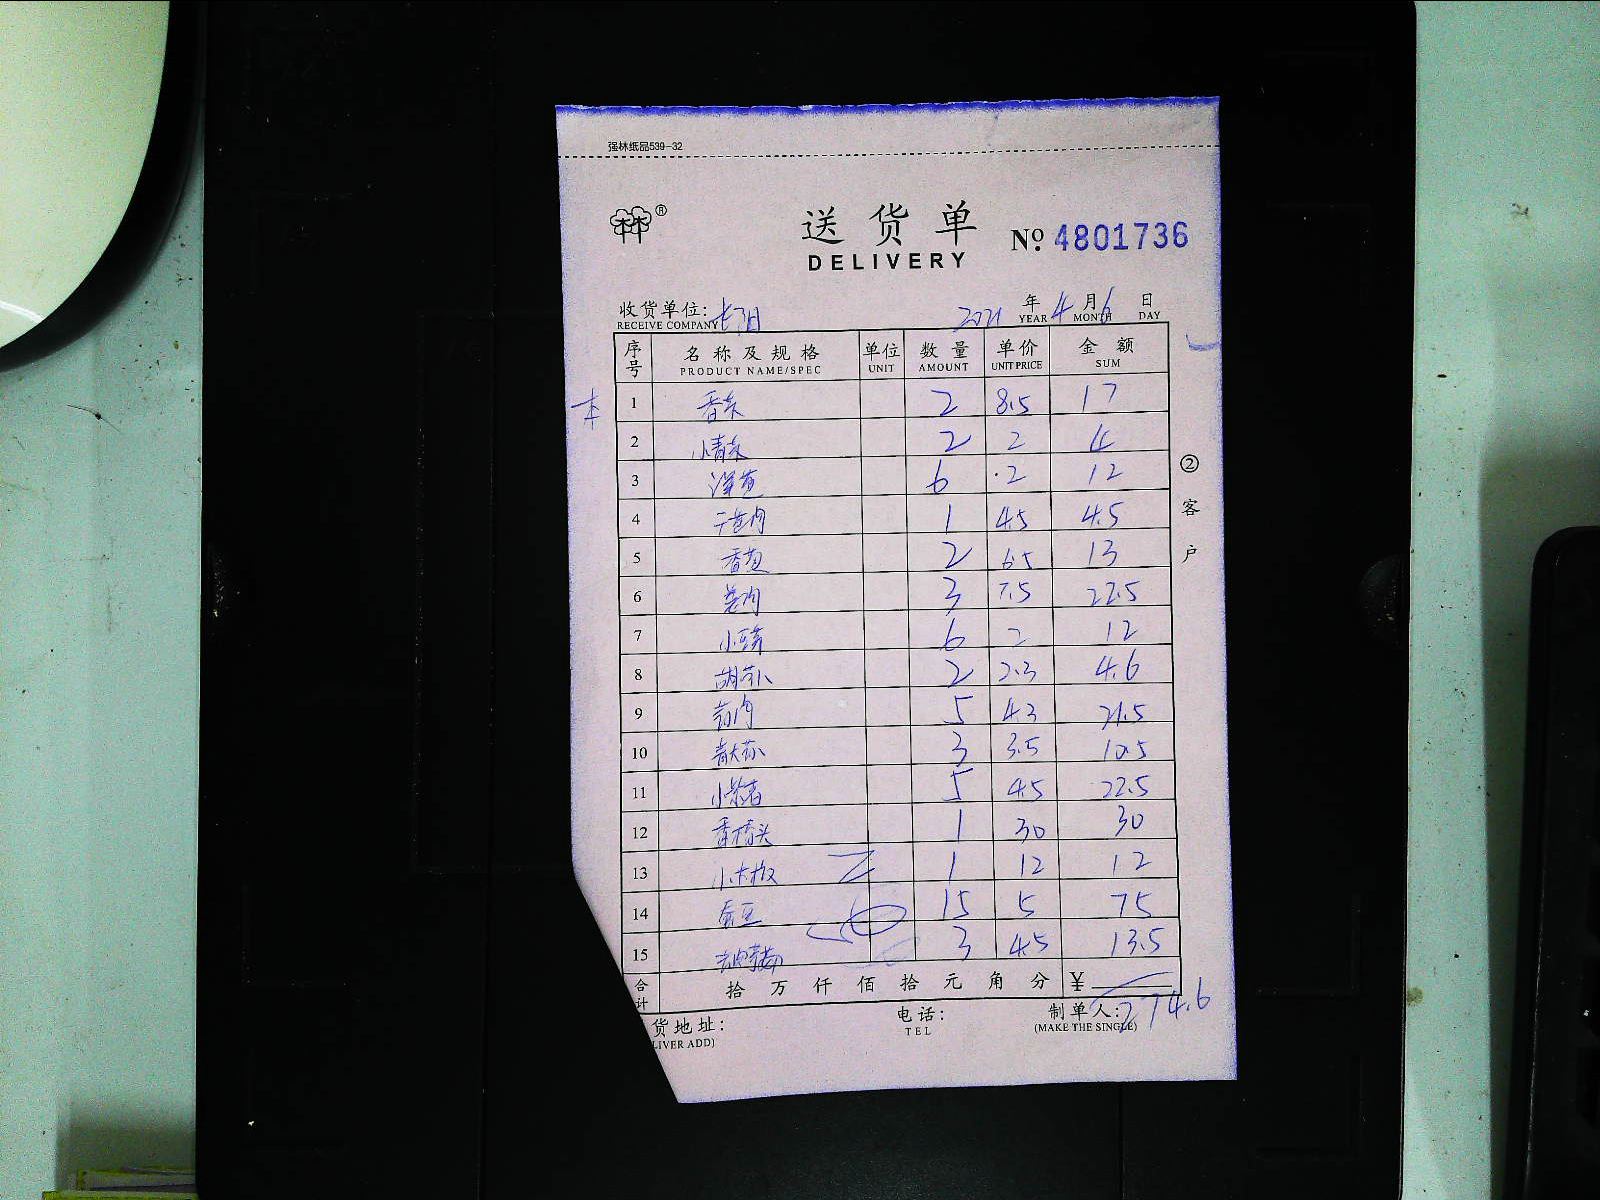 强林纸品539-32
林林®
送货单 № 4801736
DELIVERY
收货单位: 2021 年 4 月 6 日
RECEIVE COMPANY YEAR MONTH DAY
序号 名称及规格 单位 数量 单价 金额
PRODUCT NAME/SPEC UNIT AMOUNT UNIT PRICE SUM
1 香菜 2 8.5 17
2 小青菜 2 2 4
3 洋葱 6 2 12
4 1 4.5 4.5
5 香葱 2 6.5 13
6 3 7.5 22.5
7 6 2 12
8 2 2.3 4.6
9 5 4.3 21.5
10 3 3.5 10.5
11 5 4.5 22.5
12 1 30 30
13 小木板 1 12 12
14 15 5 75
15 3 4.5 13.5
合计 拾万仟佰拾元角分 ¥ 274.6
货地址: 电话: 制单人:
LIVER ADD) TEL (MAKE THE SINGLE)
② 客户